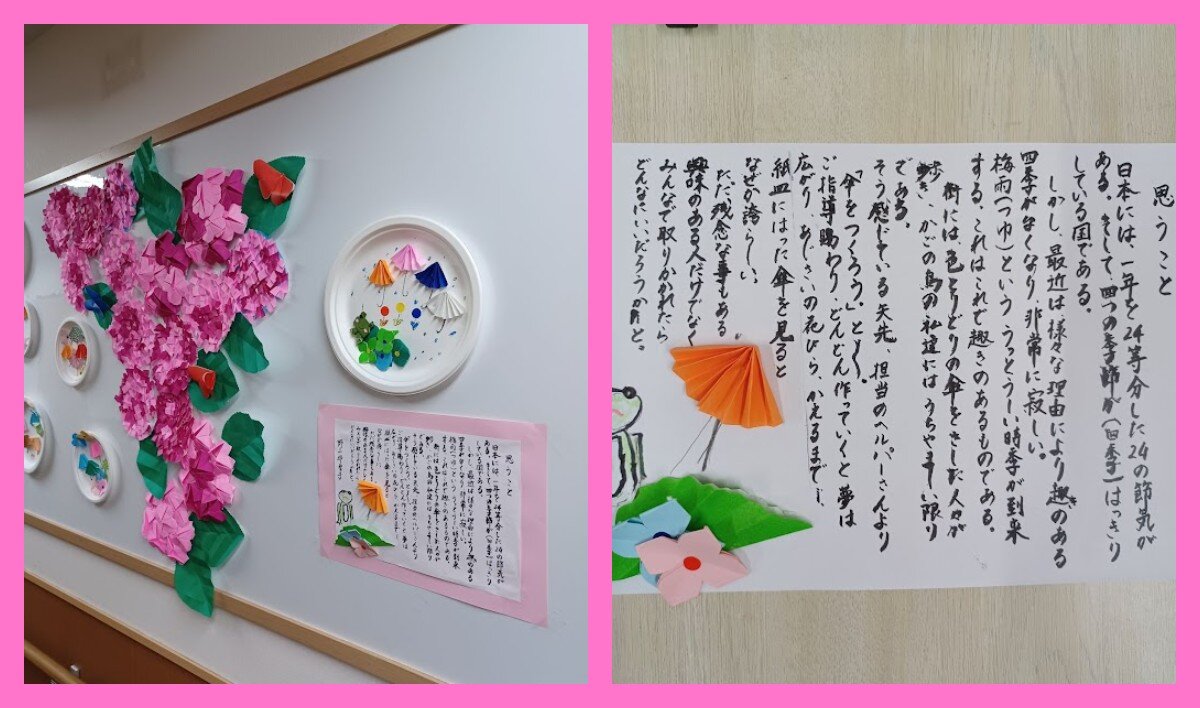 思うこと
日本には、一年を24等分した24の節気が
ある。そして、四つの季節が(四季)はっきり
している国である。
しかし、最近は様々な理由により趣きのある
四季がなくなり、非常に寂しい。
梅雨(つゆ)という うっとうしい時季が到来
する。これはこれで趣きのあるものである。
街には、色とりどりの傘をさした人々が
歩き、かごの鳥の私達にはうらやましい限り
である。
そう感じている矢先、担当のヘルパーさんより
「傘をつくろう。」と…。
ご指導賜わり、どんどん作っていくと夢は
広がり、あじさいの花びら、かえるまで…。
紙皿にはった傘を見ると
なぜか誇らしい。
ただ、残念な事もある
興味のある人だけでなく
みんなで取りかかれたら
どんなにいいだろうかと。